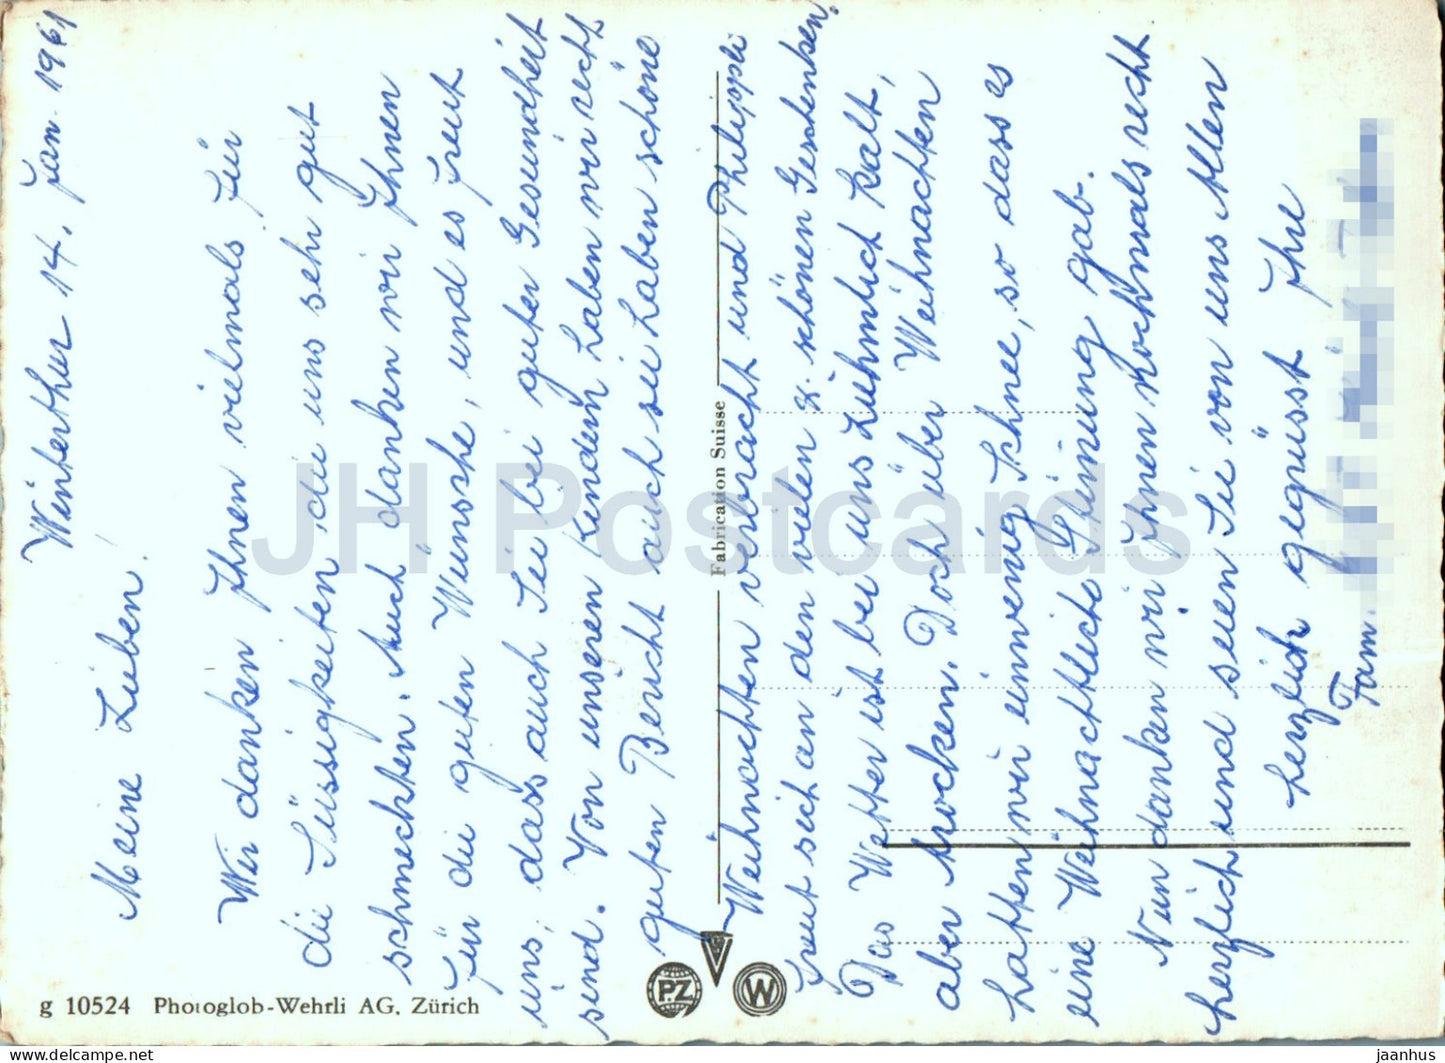 Winterthur 14. Jan. 1961
Meine Lieben!
Wir danken Ihnen vielmals für
die Süssigkeiten die uns sehr gut
schmeckten. Auch danken wir Ihnen
für die guten Wünsche, und es freut
uns, dass auch Sie bei guter Gesundheit
sind. Von unseren Kindern haben wir recht
guten Bericht auch sie haben schöne
Weihnachten verbracht und Philippli
freut sich an den vielen z. schönen Geschenken.
Das Wetter ist bei uns ziehmlich kalt,
aber trocken. Doch über Weihnachten
hatten wir einwenig Schnee, so dass es
eine Weihnachtliche Stimung gab.
Nun danken wir Ihnen nochmals recht
herzlich und seien Sie von uns Allen
herzlich gegrüsst Ihre
Fam.
g 10524 Photoglob-Wehrli AG, Zürich
Fabrication Suisse
P.Z
W
JH Postcards
delcampe.net
jaanhus